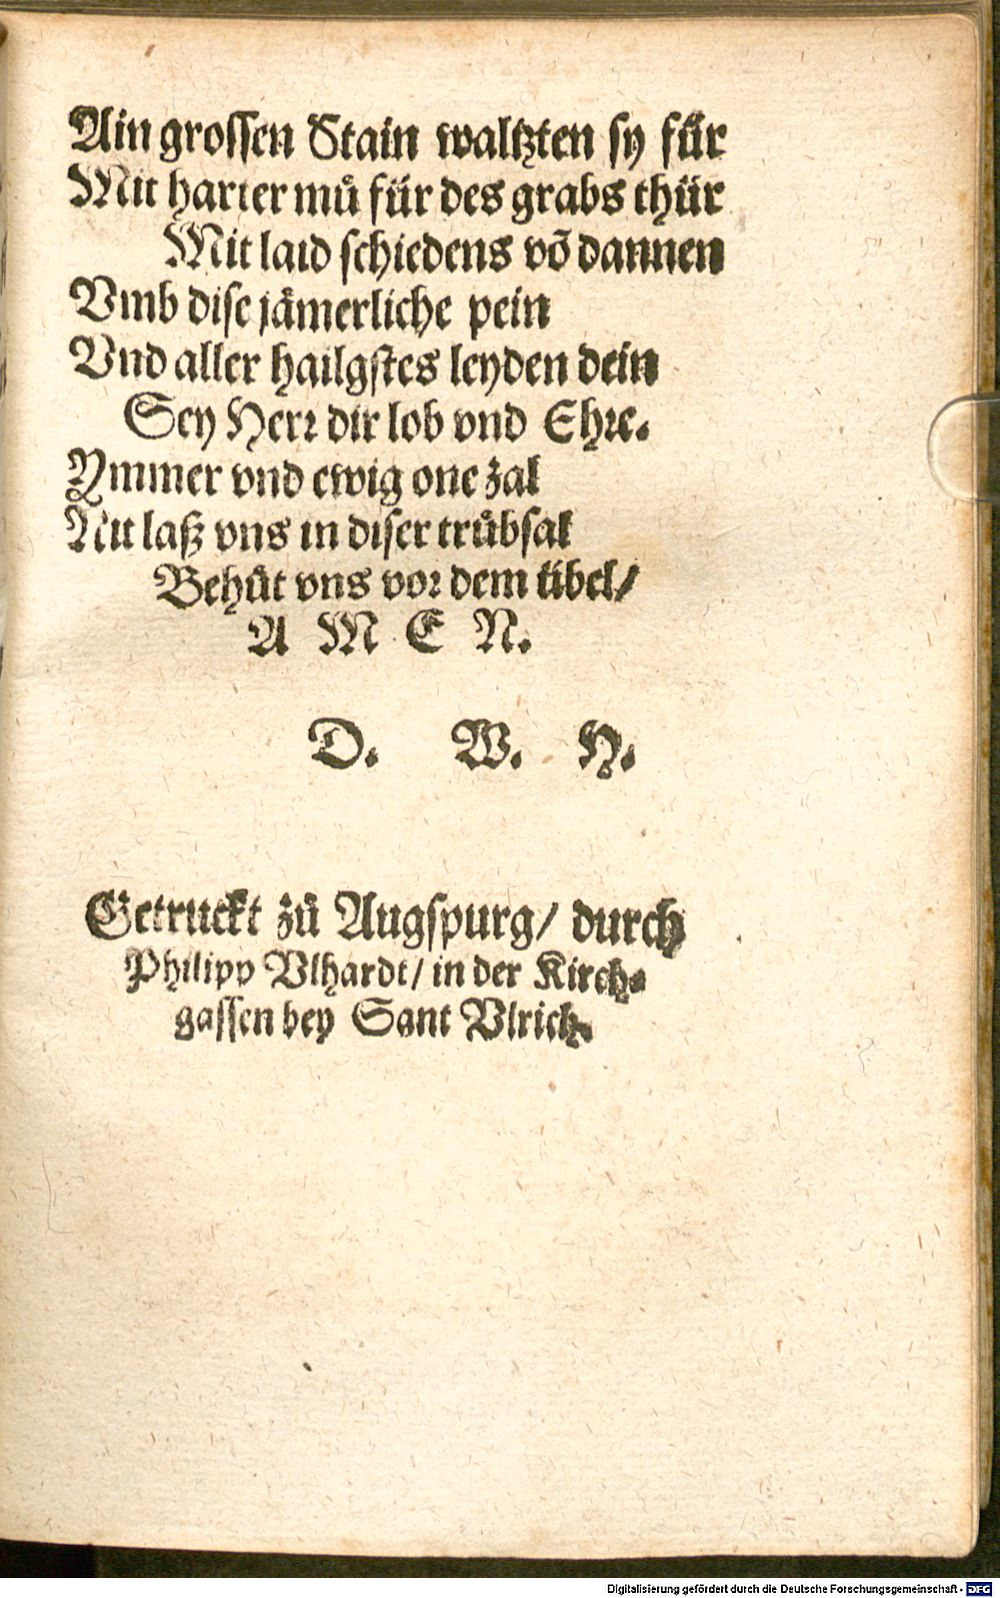 Ain grossen Stain waltzten sy für
Mit harter mů für des grabs thür
Mit laid schiedens võ dannen
Vmb dise jämerliche pein
Vnd aller hailgstes leyden dein
Sey Herr dir lob vnd Ehre.
Ymmer vnd ewig one zal
Nit laß vns in diser trübsal
Behüt vns vor dem übel/
A M E N.
D. W. H.
Getruckt zů Augspurg/ durch
Philipp Vlhardt/ in der Kirch-
gassen bey Sant Vlrich.
Digitalisierung gefördert durch die Deutsche Forschungsgemeinschaft - DFG